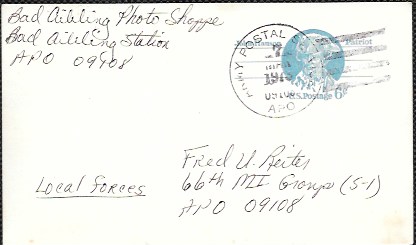 Bad Aibling Photo Shoppe
Bad Aibling Station
APO 09108
ARMY POSTAL
1973
09108
APO
Patriot
U.S. Postage 6¢
Local Forces
Fred U. Reiter
66th MI Group (S-1)
APO 09108